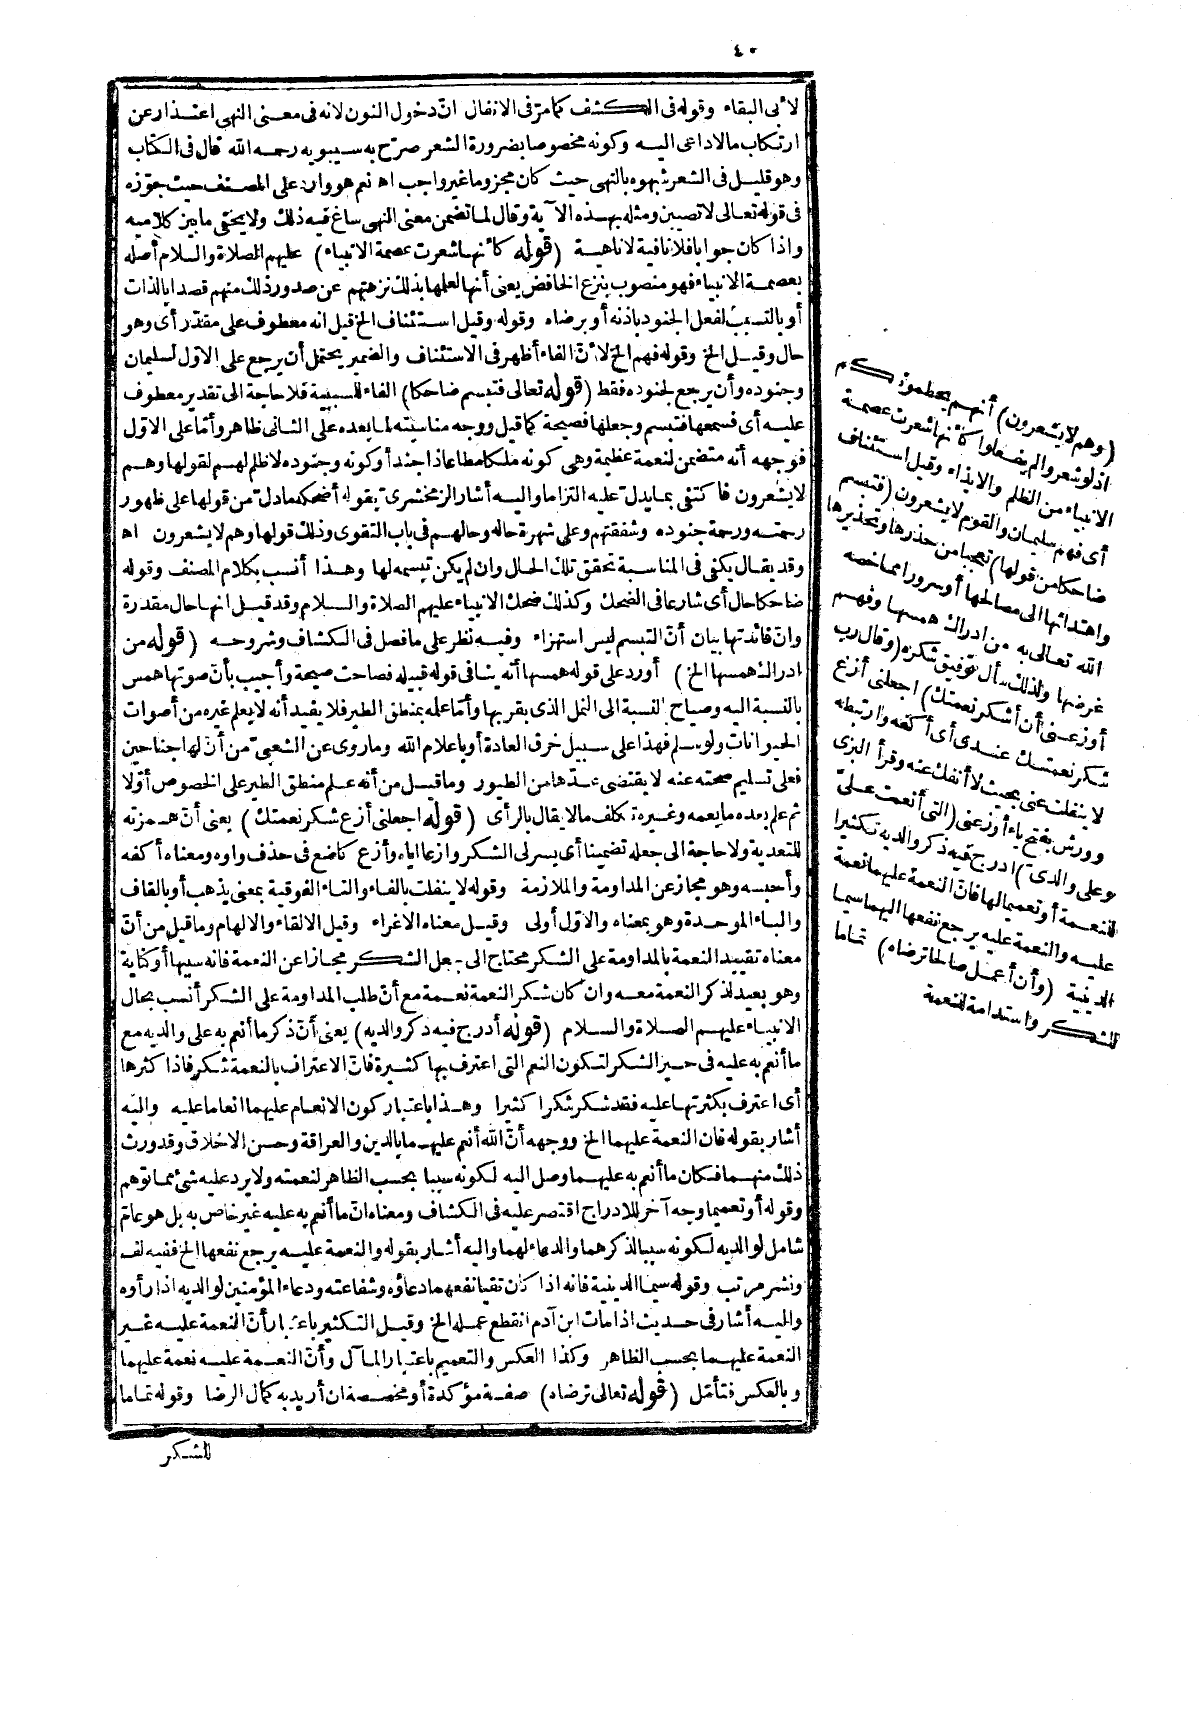 ٤٠
لأبى البقاء وقوله فى الكشف كما مرّ فى الانفال انّ دخول النون لانه فى معنى النهى اعتذار عن
ارتكاب مالا داعى اليه وكونه مخصوصا بضرورة الشعر صرّح به سيبويه رحمه الله قال فى الكتاب
وهو قليل فى الشعر شبهوه بالنهى حيث كان مجزوما غير واجب اه نعم هو وارد على المصنف حيث جوّزه
فى قوله تعالى لا تصيبن ومثله بهذه الآية وقال لما تضمن معنى النهى ساغ فيه ذلك ولا يخفى ما بين كلاميه
واذا كان جوابا فلا نافية لا ناهية (قوله كأنها شعرت عصمة الانبياء) عليهم الصلاة والسلام أصله
بعصمة الانبياء فهو منصوب بنزع الخافض يعنى أنها لعلمها بذلك نزهتهم عن صدور ذلك منهم قصدا بالذات
أو بالتسبب لفعل الجنود باذنه أو برضاه وقوله وقيل استئناف الخ قيل انه معطوف على مقدّر أى وهو
حال وقيل الخ وقوله فهم الخ لأنّ الفاء أظهر فى الاستئناف والضمير يحتمل أن يرجع على الاوّل لسليمان
وجنوده وأن يرجع لجنوده فقط (قوله تعالى فتبسم ضاحكا) الفاء للسببية فلا حاجة الى تقدير معطوف
عليه أى فسمعها فتبسم وجعلها فصيحة كما قيل ووجه مناسبته لما بعده على الثانى ظاهر وأمّا على الاوّل
فوجهه أنه متضمن لنعمة عظيمة وهى كونه ملكا مطاعا ذا جند أو كونه وجنوده لا ظلم لهم لقولها وهم
لا يشعرون فاكتفى بما يدل عليه التزاما واليه أشار الزمخشرىّ بقوله أضحكه مادلّ من قولها على ظهور
رحمته ورحمة جنوده وشفقتهم وعلى شهرة حاله وحالهم فى باب التقوى وذلك قولها وهم لا يشعرون اه
وقد يقال يكفى فى المناسبة تحقق تلك الحال وان لم يكن تبسمه لها وهذا أنسب بكلام المصنف وقوله
ضاحكا حال أى شارعا فى الضحك وكذلك ضحك الانبياء عليهم الصلاة والسلام وقد قيل انها حال مقدرة
وان فائدتها بيان أنّ التبسم ليس استهزاء وفيه نظر على ما فصل فى الكشاف وشروحه (قوله من
ادراك همسها الخ) أورد على قوله همسها أنه ينافى قوله قبيله فصاحت صيحة وأجيب بأنّ صوتها همس
بالنسبة اليه وصياح بالنسبة الى النمل الذى بقربها وأمّا علمه بمنطق الطير فلا يفيد أنه لا يعلم غيره من أصوات
الحيوانات ولو سلم فهذا على سبيل خرق العادة أو باعلام الله وما روى عن الشعبىّ من أنّ لها جناحين
فعلى تسليم صحته عنه لا يقتضى عدّها من الطيور وما قيل من أنه علم منطق الطير على الخصوص أوّلا
ثم علم بعده ما يعمه وغيره تكلف مالا يقال بالرأى (قوله اجعلنى أزع شكر نعمتك) يعنى أنّ همزته
للتعدية ولا حاجة الى جعله تضمينا أى يسر لى الشكر وازعا اياه وأزع كاضع فى حذف واوه ومعناه أكفه
وأحبسه وهو مجاز عن المداومة والملازمة وقوله لا ينفلت بالفاء والتاء الفوقية بمعنى يذهب أو بالقاف
والباء الموحدة وهو بمعناه والاوّل أولى وقيل معناه الاغراء وقيل الالقاء والالهام وما قيل من أنّ
معناه تقييد النعمة بالمداومة على الشكر محتاج الى جعل الشكر مجازا عن النعمة فانه سببها أو كناية
وهو بعيد لذكر النعمة معه وان كان شكر النعمة نعمة مع أنّ طلب المداومة على الشكر أنسب بحال
الانبياء عليهم الصلاة والسلام (قوله أدرج فيه ذكر والديه) يعنى أنّ ذكر ما أنعم به على والديه مع
ما أنعم به عليه فى حيز الشكر لتكون النعم التى اعترف بها كثيرة فانّ الاعتراف بالنعمة شكر فاذا كثرها
أى اعترف بكثرتها عليه فقد شكر شكرا كثيرا وهذا باعتبار كون الانعام عليهما انعاما عليه واليه
أشار بقوله فان النعمة عليهما الخ ووجهه أنّ الله أنعم عليهما بالدين والعراقة وحسن الاخلاق وقد ورث
ذلك منهما فكان ما أنعم به عليهما وصل اليه لكونه سببا بحسب الظاهر لنعمته ولا يرد عليه شئ مما توهم
وقوله أو تعميما وجه آخر للادراج اقتصر عليه فى الكشاف ومعناه انّ ما أنعم به عليه غير خاص به بل هو عامّ
شامل لوالديه لكونه سببا لذكرهما والدعاء لهما واليه أشار بقوله والنعمة عليه يرجع نفعها الخ ففيه لف
ونشر مرتب وقوله سيما الدينية فانه اذا كان تقيا نفعهما دعاؤه وشفاعته ودعاء المؤمنين لوالديه اذا رأوه
واليه أشار فى حديث اذا مات ابن آدم انقطع عمله الخ وقيل التكثير باعتبار أنّ النعمة عليه غير
النعمة عليهما بحسب الظاهر وكذا العكس والتعميم باعتبار المآل وأنّ النعمة عليه نعمة عليهما
وبالعكس فتأمّل (قوله تعالى ترضاه) صفة مؤكدة أو مخصصة ان أريد به كمال الرضا وقوله تماما
للشكر
(وهم لا يشعرون) أنهم يحطمونكم
اذ لو شعروا لم يفعلوا كأنها شعرت عصمة
الانبياء من الظلم والايذاء وقيل استئناف
أى فهم سليمان والقوم لا يشعرون (فتبسم
ضاحكا من قولها) تعجبا من حذرها وتحذيرها
واهتدائها الى مصالحها أو سرورا بما خصه
الله تعالى به من ادراك همسها وفهم
غرضها ولذلك سأل توفيق شكره (وقال رب
أوزعنى أن أشكر نعمتك) اجعلنى أزع
شكر نعمتك عندى أى أكفه وأرتبطه
لا ينفلت عنى بحيث لا أنفك عنه وقرأ البزى
وورش بفتح ياء أوزعنى (التى أنعمت علىّ
وعلى والدىّ) ادرج فيه ذكر والديه تكثيرا
للنعمة أو تعميما لها فانّ النعمة عليهما نعمة
عليه والنعمة عليه يرجع نفعها اليهما سيما
الدينية (وأن أعمل صالحا ترضاه) تماما
للشكر واستدامة للنعمة